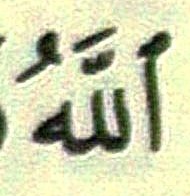 اللَّهُ